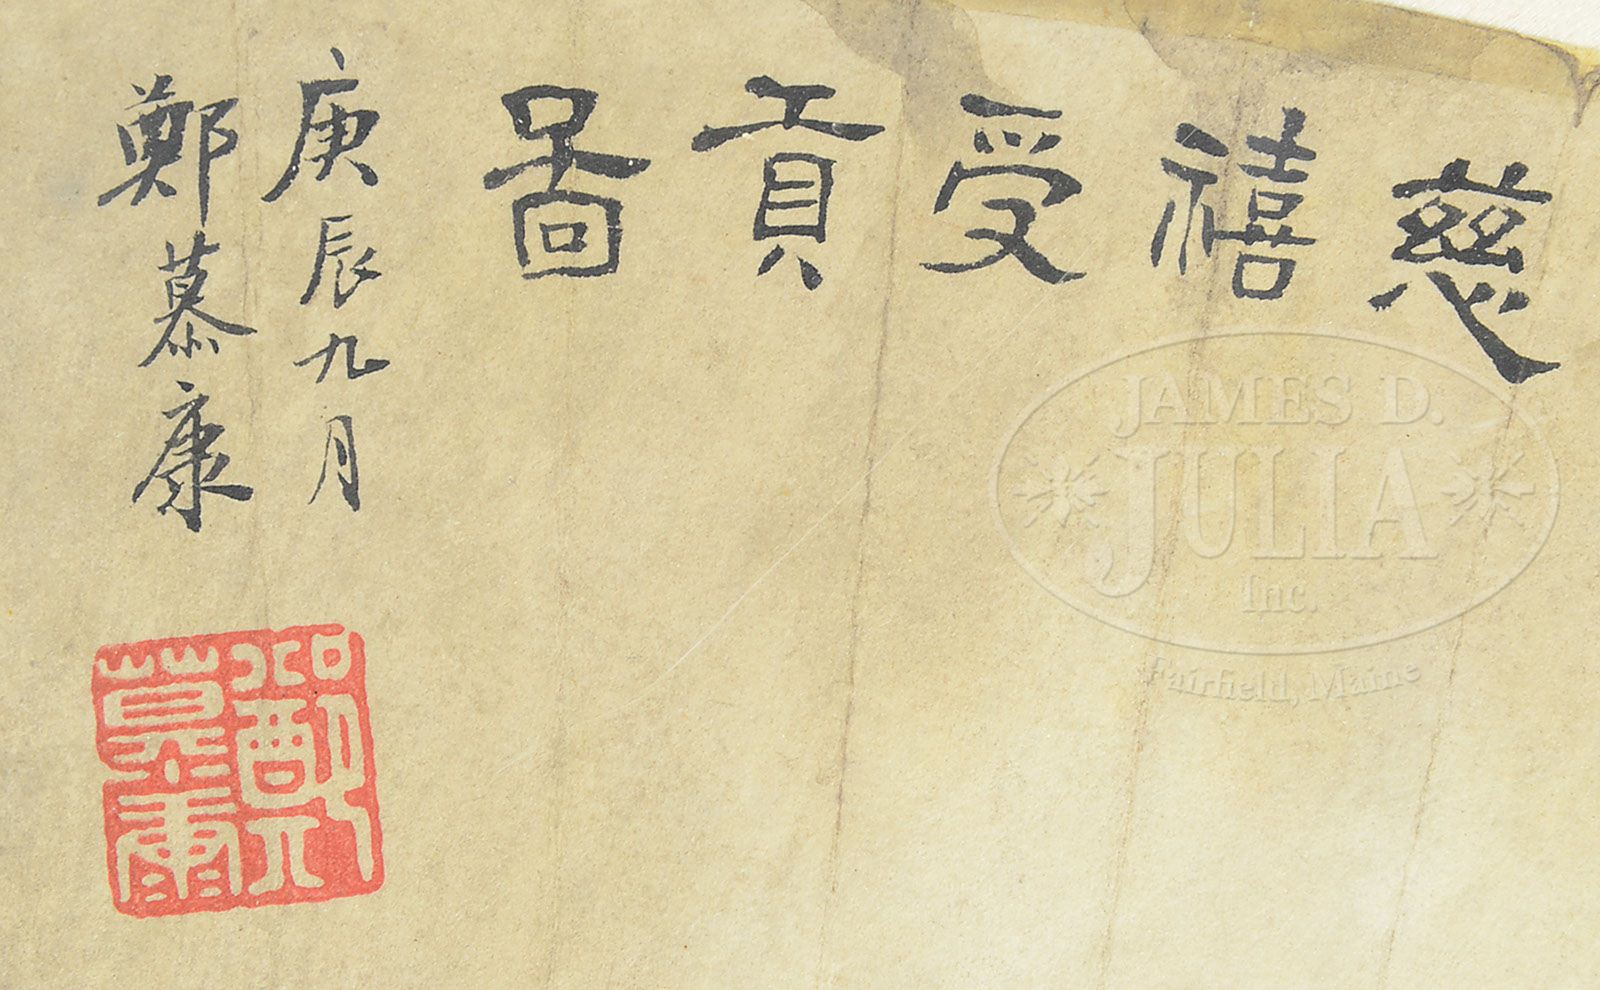 慈禧受貢啚
庚辰九月
鄭慕康
鄭慕康
JAMES D.
JULIA
Inc.
Fairfield, Maine